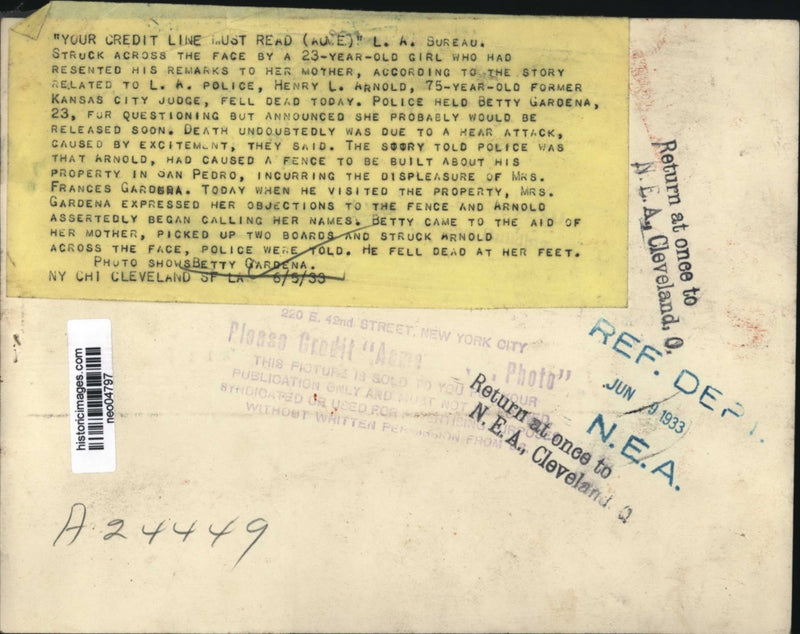 "YOUR CREDIT LINE MUST READ (ACME)" L. A. BUREAU.
STRUCK ACROSS THE FACE BY A 23-YEAR-OLD GIRL WHO HAD
RESENTED HIS REMARKS TO HER MOTHER, ACCORDING TO THE STORY
RELATED TO L. A. POLICE, HENRY L. ARNOLD, 75-YEAR-OLD FORMER
KANSAS CITY JUDGE, FELL DEAD TODAY. POLICE HELD BETTY GARDENA,
23, FOR QUESTIONING BUT ANNOUNCED SHE PROBABLY WOULD BE
RELEASED SOON. DEATH UNDOUBTEDLY WAS DUE TO A HEAR ATTACK,
CAUSED BY EXCITEMENT, THEY SAID. THE STORY TOLD POLICE WAS
THAT ARNOLD, HAD CAUSED A FENCE TO BE BUILT ABOUT HIS
PROPERTY IN SAN PEDRO, INCURRING THE DISPLEASURE OF MRS.
FRANCES GARDENA. TODAY WHEN HE VISITED THE PROPERTY, MRS.
GARDENA EXPRESSED HER OBJECTIONS TO THE FENCE AND ARNOLD
ASSERTEDLY BEGAN CALLING HER NAMES. BETTY CAME TO THE AID OF
HER MOTHER, PICKED UP TWO BOARDS AND STRUCK ARNOLD
ACROSS THE FACE, POLICE WERE TOLD. HE FELL DEAD AT HER FEET.
PHOTO SHOWS BETTY GARDENA.
NY CHI CLEVELAND SF LA 6/5/33
Return at once to
N.E.A., Cleveland, O.
220 E. 42nd STREET, NEW YORK CITY
Please Credit "Acme Photo"
THIS PICTURE IS SOLD TO YOU FOR YOUR
PUBLICATION ONLY AND MUST NOT
SYNDICATED OR USED FOR ADVERTISING PURPOSES
WITHOUT WRITTEN PERMISSION FROM US
REF. DEPT.
JUN 9 1933
N.E.A.
Return at once to
N.E.A., Cleveland, O
historicimages.com
neo04797
A 24449